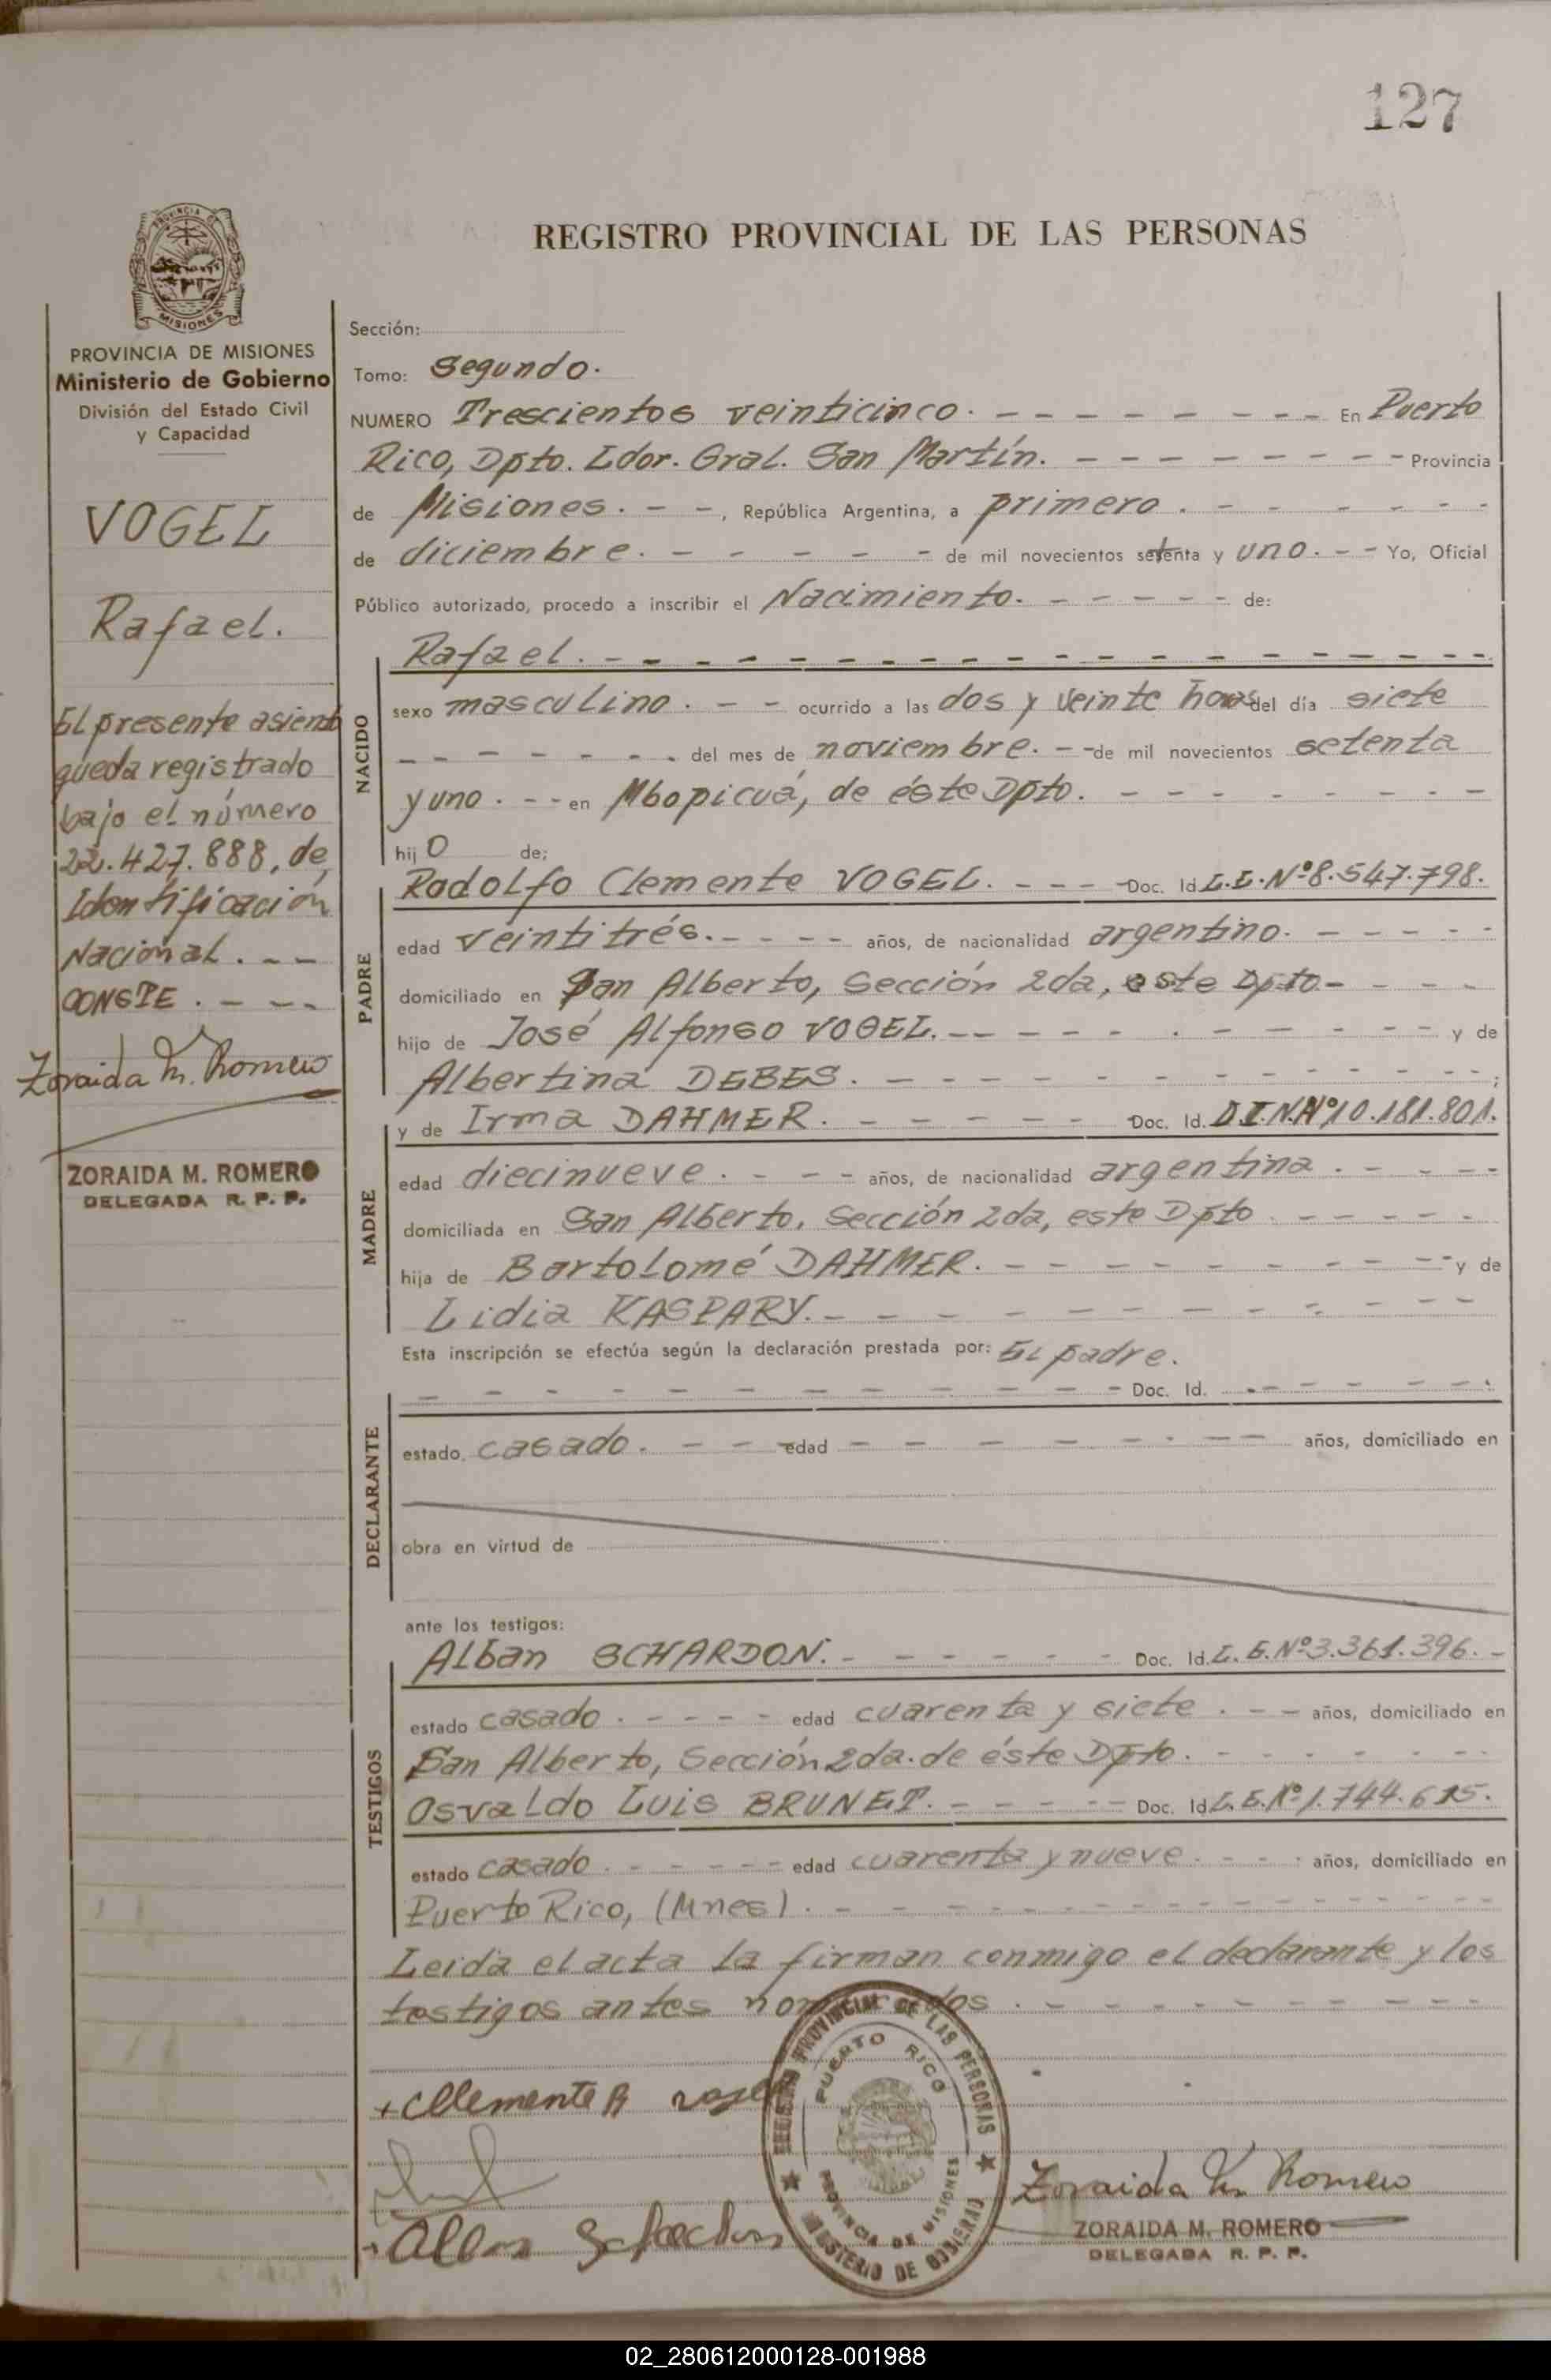 127
REGISTRO PROVINCIAL DE LAS PERSONAS
PROVINCIA DE MISIONES
Ministerio de Gobierno
División del Estado Civil
y Capacidad
VOGEL
Rafael.
El presente asiento
queda registrado
bajo el número
22.427.888, de
Identificación
Nacional. - -
CONSTE. - - -
Zoraida M. Romero
ZORAIDA M. ROMERO
DELEGADA R. P. P.
Sección:
Tomo: Segundo.
NUMERO Trescientos veinticinco. - - - - - - - - En Puerto
Rico, Dpto. Ldor. Gral. San Martín. - - - - - - - - Provincia
de Misiones. - -, República Argentina, a primero. - - - - - -
de diciembre. - - - - - - de mil novecientos setenta y uno. - - Yo, Oficial
Público autorizado, procedo a inscribir el Nacimiento. - - - - - de:
NACIDO
Rafael. - - - - - - - - - - - - - - - - - -
sexo masculino. - - ocurrido a las dos y veinte horas del día siete
- - - - - - - del mes de noviembre. - - de mil novecientos setenta
y uno. - - en Mbopicuá, de éste Dpto. - - - - - - - -
hijo de:
PADRE
Rodolfo Clemente VOGEL. - - - - Doc. Id L.E. Nº 8.547.798.
edad veintitrés. - - - - años, de nacionalidad argentino. - - - - -
domiciliado en San Alberto, Sección 2da, este Dpto - - - -
hijo de José Alfonso VOGEL. - - - - - - - - - - y de
Albertina DEBES. - - - - - - - - - - - - - ;
MADRE
y de Irma DAHMER. - - - - - - Doc. Id. D.I.N. Nº 10.181.801.
edad diecinueve. - - - años, de nacionalidad argentina. - - - -
domiciliada en San Alberto, Sección 2da, este Dpto. - - - - -
hija de Bartolomé DAHMER. - - - - - - - - - y de
Lidia KASPARY. - - - - - - - - - - - -
Esta inscripción se efectúa según la declaración prestada por: El padre.
DECLARANTE
- - - - - - - - - - - - Doc. Id. - - - - - -.
estado casado. - - - edad - - - - - - - - años, domiciliado en
obra en virtud de
ante los testigos:
TESTIGOS
Alban SCHARDON. - - - - - - Doc. Id. L.E. Nº 3.361.396. -
estado casado. - - - - edad cuarenta y siete. - - años, domiciliado en
San Alberto, Sección 2da. de éste Dpto. - - - - - - -
Osvaldo Luis BRUNET. - - - - - Doc. Id L.E. Nº 1.744.615.
estado casado. - - - - - edad cuarenta y nueve. - - - años, domiciliado en
Puerto Rico, (Mnes). - - - - - - - - - - - - -
Leida el acta la firman conmigo el declarante y los
testigos antes nombrados. - - - - - - - - -
REGISTRO PROVINCIAL DE LAS PERSONAS
PUERTO RICO
PROVINCIA DE MISIONES
MINISTERIO DE GOBIERNO
+ Cllemente R
Zoraida M. Romero
ZORAIDA M. ROMERO
DELEGADA R. P. P.
02_280612000128-001988